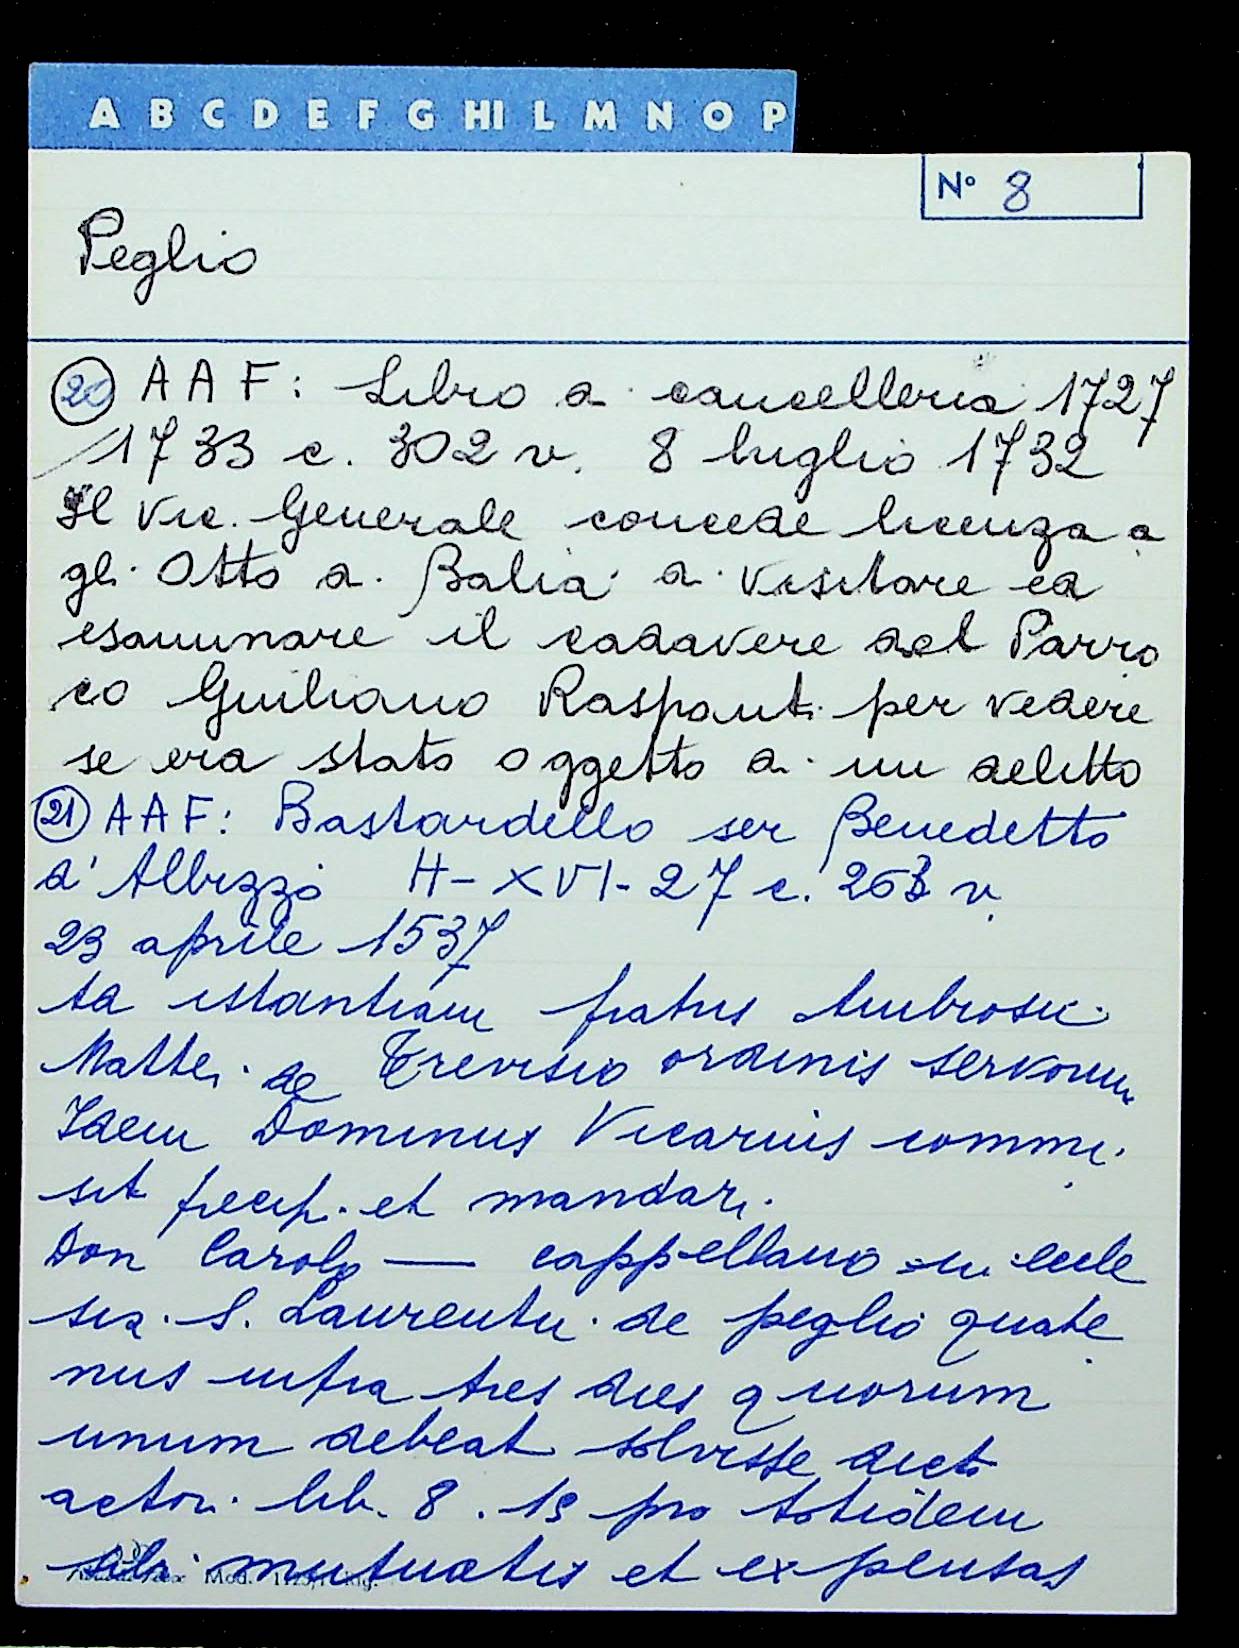 A B C D E F G HI L M N O P
N° 8
Peglio
20 A A F: Libro di cancelleria 1727
1733 c. 302 v. 8 luglio 1732
Il Vic. Generale concede licenza a
gli Otto di Balia di visitare ed
esaminare il cadavere del Parro
co Giuliano Rasponti per vedere
se era stato oggetto di un delitto
21 A A F: Bastardello ser Benedetto
d'Albizzo H-XVI-27 c. 263 v.
23 aprile 1537
ad istantiam fratris Ambrosii
Mattei de Trevisio ordinis servorum
Idem Dominus Vicarius commi
sit precip. et mandari
Don Carolo — cappellano in eccle
sia S. Laurentii de peglio quate
nus infra tres dies quorum
unum debeat solvisse dicto
actori lib. 8. 19 pro totidem
sibi mutuatis et expensas